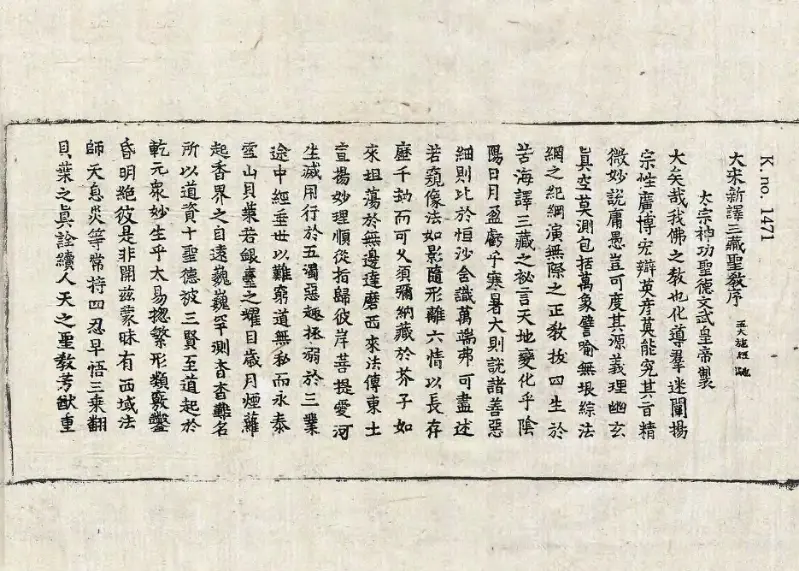 K. no. 1471
大宋新譯三藏聖教序 五大施經
太宗神功聖德文武皇帝製
大矣哉我佛之教也化導羣迷闡揚
宗性廣博宏辯英彥莫能究其旨精
微妙說庸愚豈可度其源義理幽玄
眞空莫測包括萬象譬喻無垠綜法
網之紀綱演無際之正教拔四生於
苦海譯三藏之祕言天地變化乎陰
陽日月盈虧乎寒暑大則說諸善惡
細則比於恒沙含識萬端弗可盡述
若窺像法如影隨形離六情以長存
歷千劫而可久須彌納藏於芥子如
來坦蕩於無邊達磨西來法傳東土
宣揚妙理順從指歸彼岸菩提愛河
生滅用行於五濁惡趣拯溺於三業
途中經垂世以難窮道無私而永泰
雪山貝葉若銀臺之耀目歲月煙蘿
起香界之自遠巍巍罕測杳杳難名
所以道資十聖德被三賢至道起於
乾元衆妙生乎太易揔繁形類竅鑿
昏明絕彼是非開茲蒙昧有西域法
師天息災等常持四忍早悟三乘翻
貝葉之眞詮續人天之聖教芳猷重